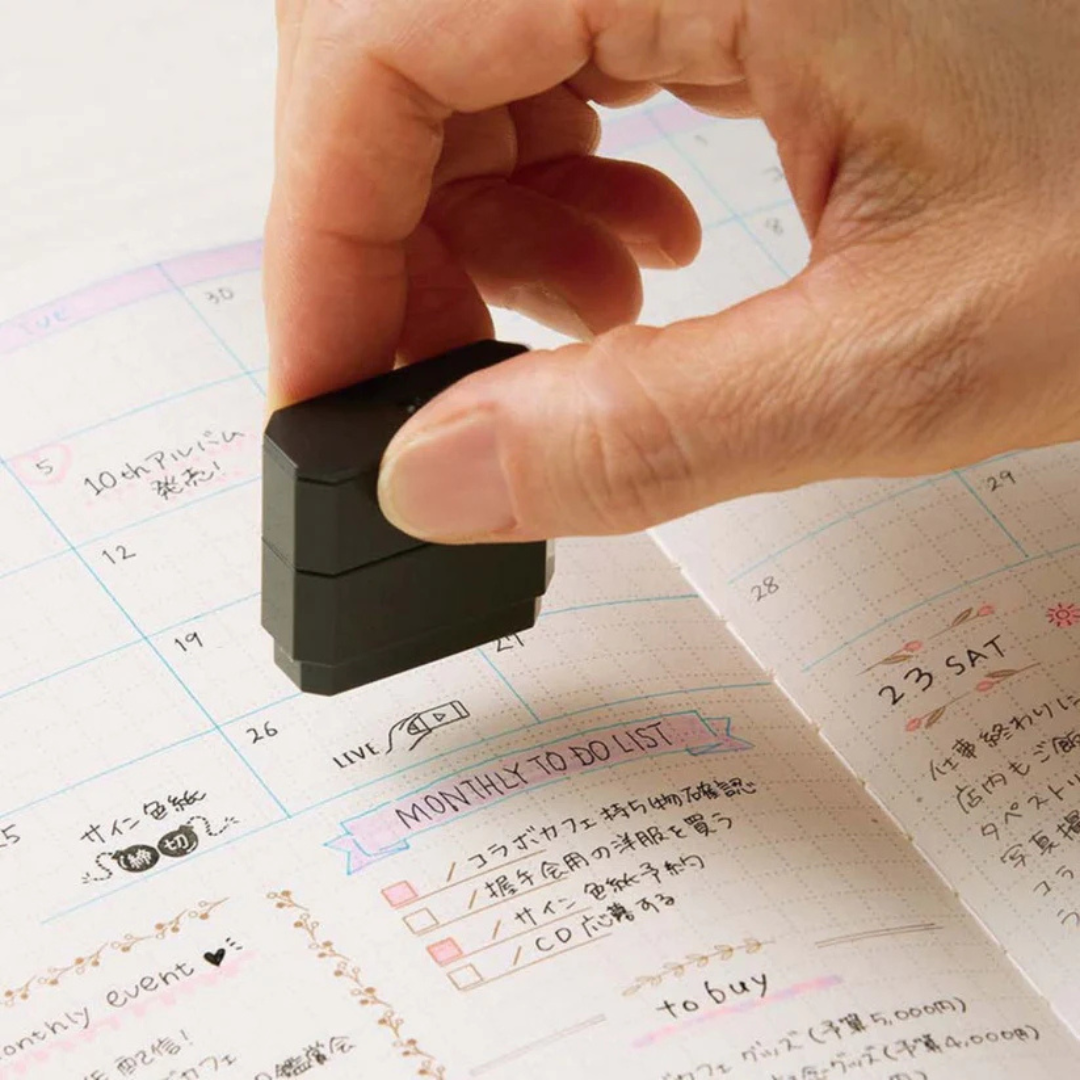 TUE
30
1
8
5
10thアルバム
発売!
12
19
27
29
28
26
LIVE
サイン色紙
締切
MONTHLY TO DO LIST
/ コラボカフェ持ち物確認
/ 握手会用の洋服を買う
/ サイン色紙予約
/ CD応募する
monthly event
配信!
カフェ
鑑賞会
to buy
カフェ グッズ(予算5,000円)
グッズ(予算4,000円)
23 SAT
仕事終わりに
店内もご飯
タペスト
写真撮
コラ